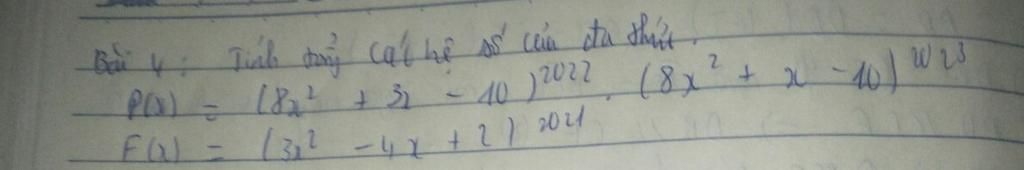 Bài 4: Tính tổng các hệ số của đa thức.
P(x) = (8x² + 3x - 10)²⁰²². (8x² + x - 10)²⁰²³
F(x) = (3x² - 4x + 2)²⁰²¹